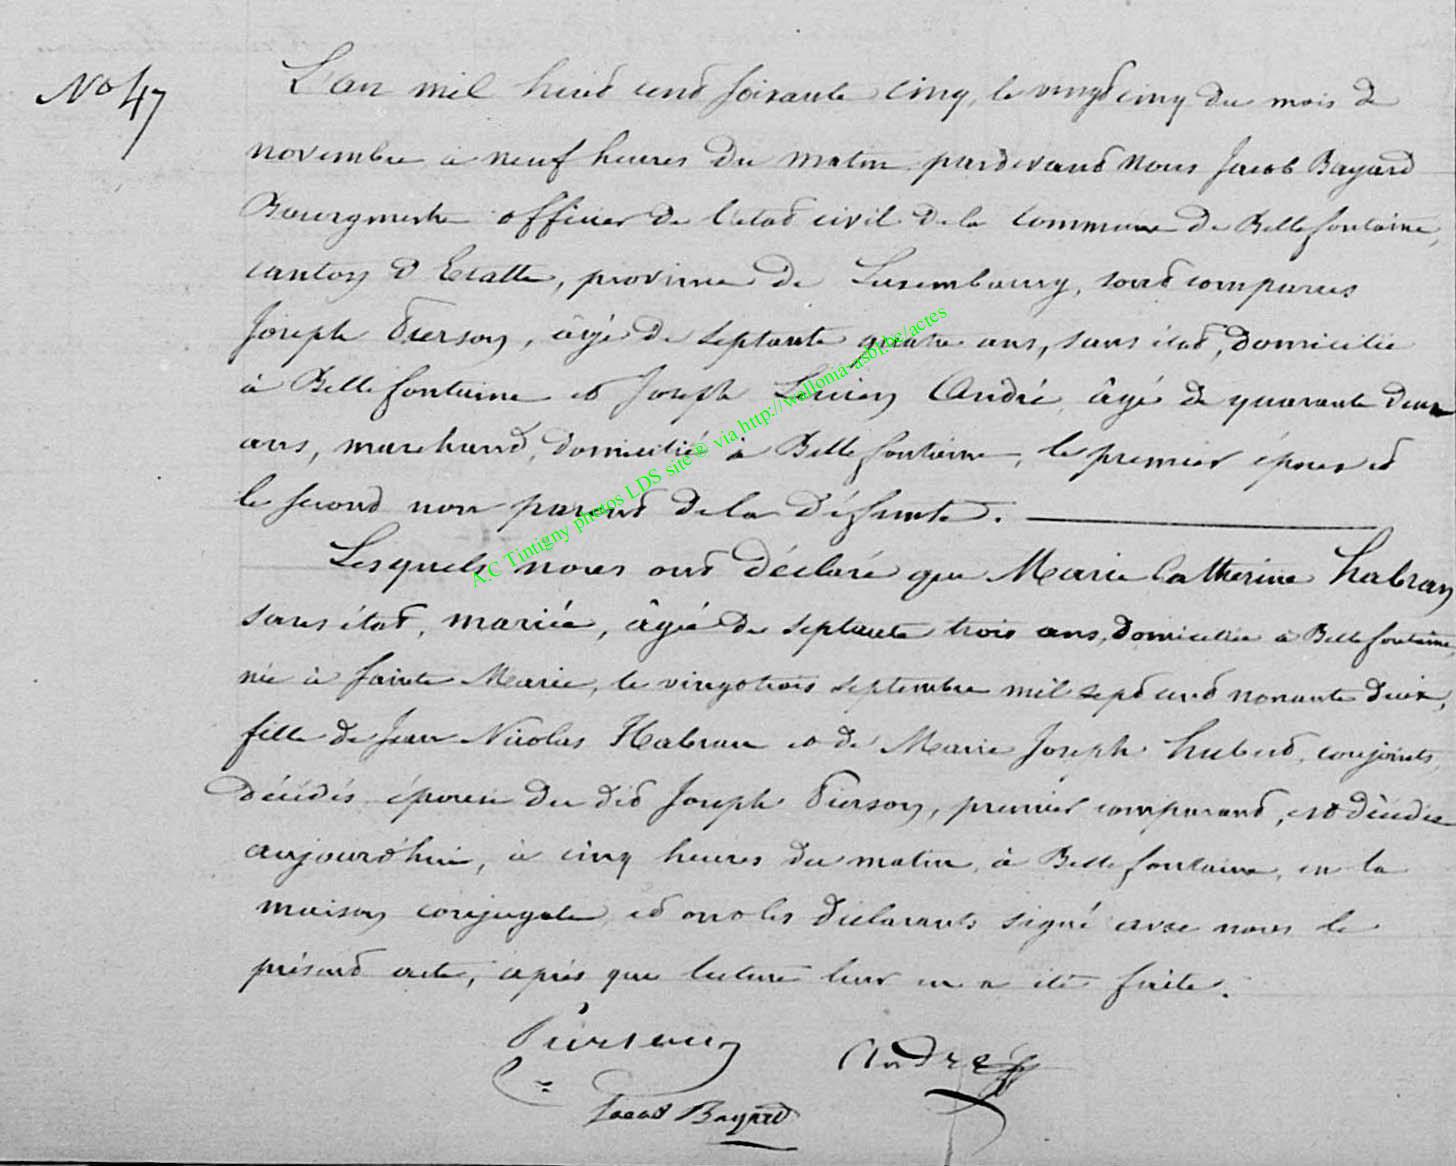 No 47
L'an mil huit cent soixante cinq, le vingt cinq du mois de
novembre à neuf heures du matin pardevant nous Jacob Bayard
Bourgmestre officier de l'état civil de la commune de Bellefontaine,
canton d'Etalle, province de Luxembourg, sont comparus
Joseph Pierson, âgé de septante quatre ans, sans état, domicilié
à Bellefontaine et Joseph Lucien André, âgé de quarante deux
ans, marchand, domicilié à Bellefontaine, le premier époux et
le second non parent de la défunte.
Lesquels nous ont déclaré que Marie Catherine Habran
sans état, mariée, âgée de septante trois ans, domiciliée à Bellefontaine,
née à Sainte Marie, le vingt trois septembre mil sept cent nonante deux,
fille de Jean Nicolas Habran et de Marie Joseph Hubert, conjoints,
décédés, épouse du dit Joseph Pierson, premier comparant, est décédée
aujourd'hui, à cinq heures du matin, à Bellefontaine, en la
maison conjugale, et ont les déclarants signé avec nous le
présent acte, après que lecture leur en a été faite.
Pierson
André
Jacob Bayard
A.C Tintigny photos LDS site® via http://wallonia-asbl.be/actes